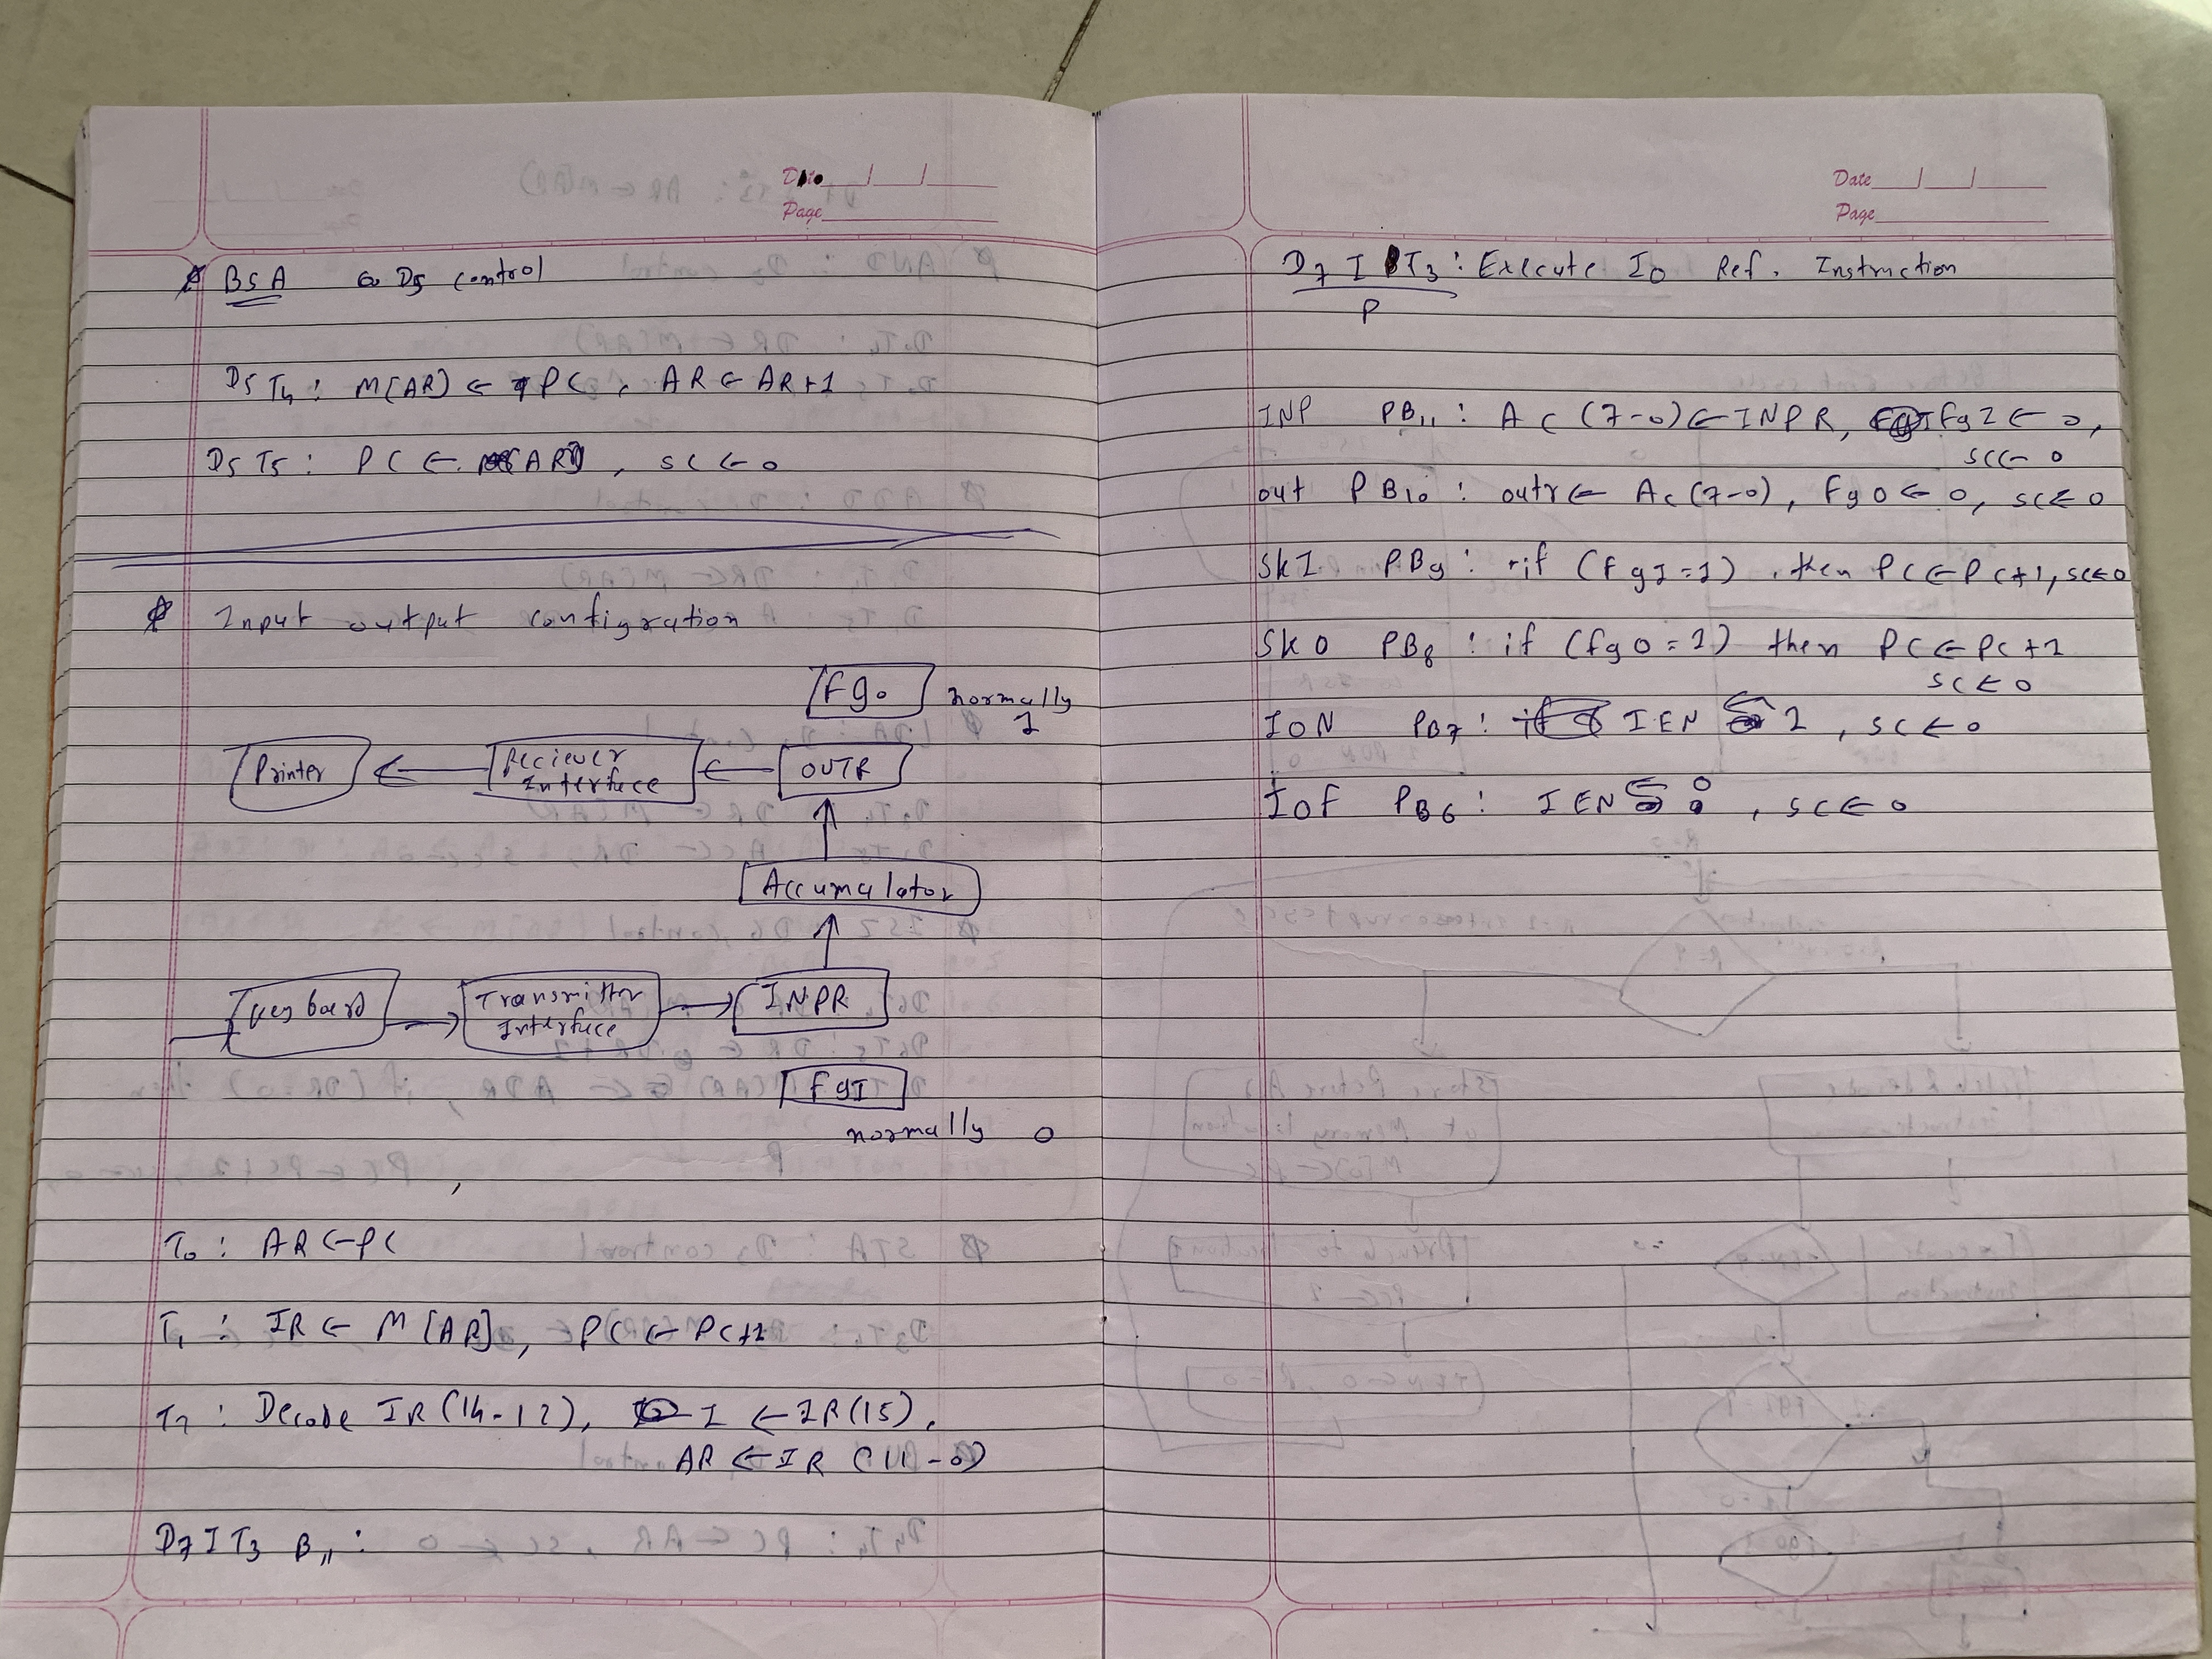 Date
Page
BSA D5 control
D5 T4 : M[AR] ← PC , AR ← AR+1
D5 T5 : PC ← AR , SC ← 0
Input output configration
Fgo normally
1
Printer ← Reciever Interface ← OUTR
Accumulator
Keyboard → Transmitter Interface → INPR
FgI
normally 0
T0 : AR ← PC
T1 : IR ← M[AR], PC ← PC+1
T2 : Decode IR(14-12), I ← IR(15),
AR ← IR (11-0)
D7 I T3 B11 :
Date
Page
D7 I T3 : Execute IO Ref. Instruction
P
INP PB11 : AC (7-0) ← INPR, FgI ← 0,
SC ← 0
out PB10 : outr ← AC (7-0), Fgo ← 0, SC ← 0
SKI PB9 : if (fgI=1) , then PC ← PC+1, SC ← 0
SKO PB8 : if (fgo=1) then PC ← PC+1
SC ← 0
ION PB7 : IEN ← 1 , SC ← 0
IOF PB6 : IEN ← 0 , SC ← 0